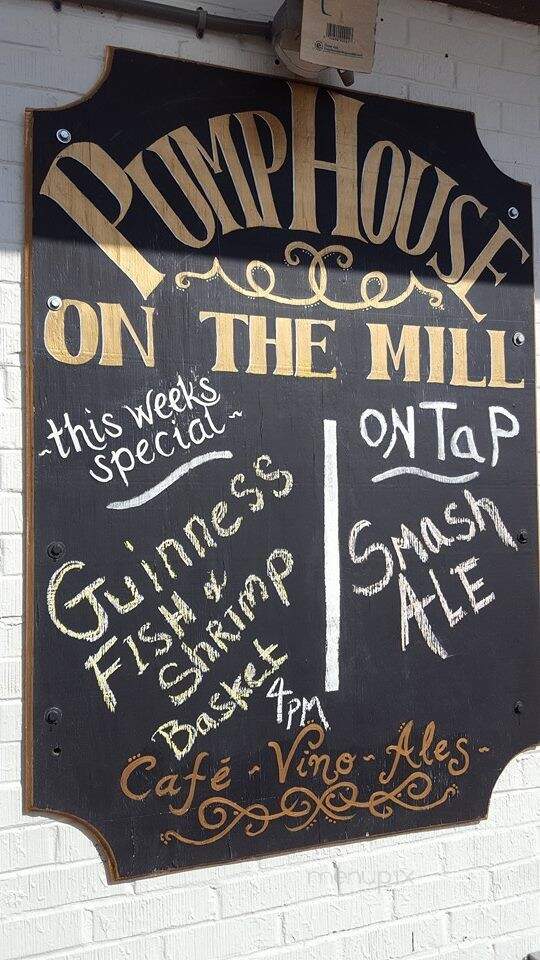 PUMPHOUSE
ON THE MILL
~this weeks
special~
Guinness
FISH &
SHRIMP
Basket
4PM
ON TaP
Smash
ALE
Café ~ Vino ~ Ales ~
menupix